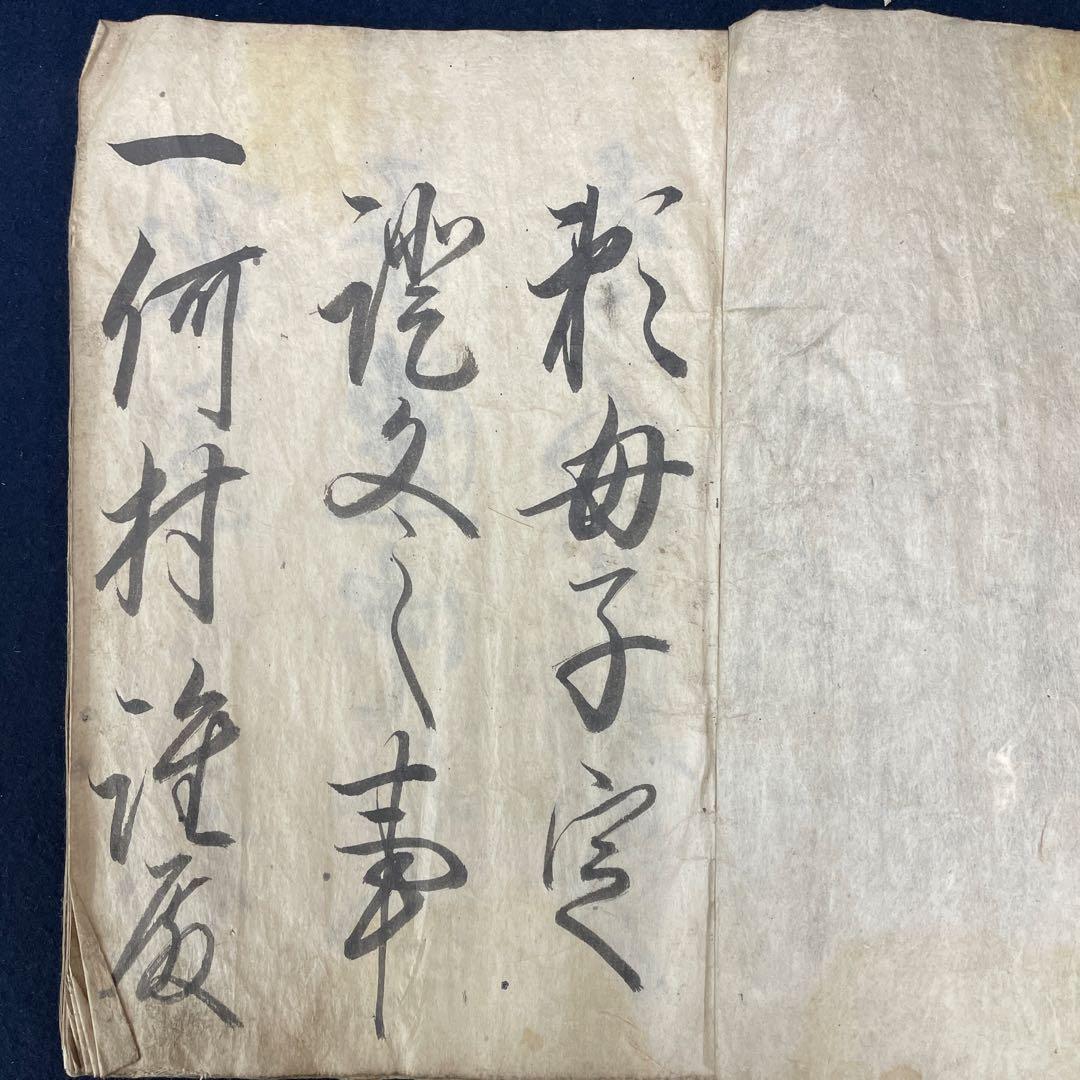 頼母子定
證文之事
一何村誰殿